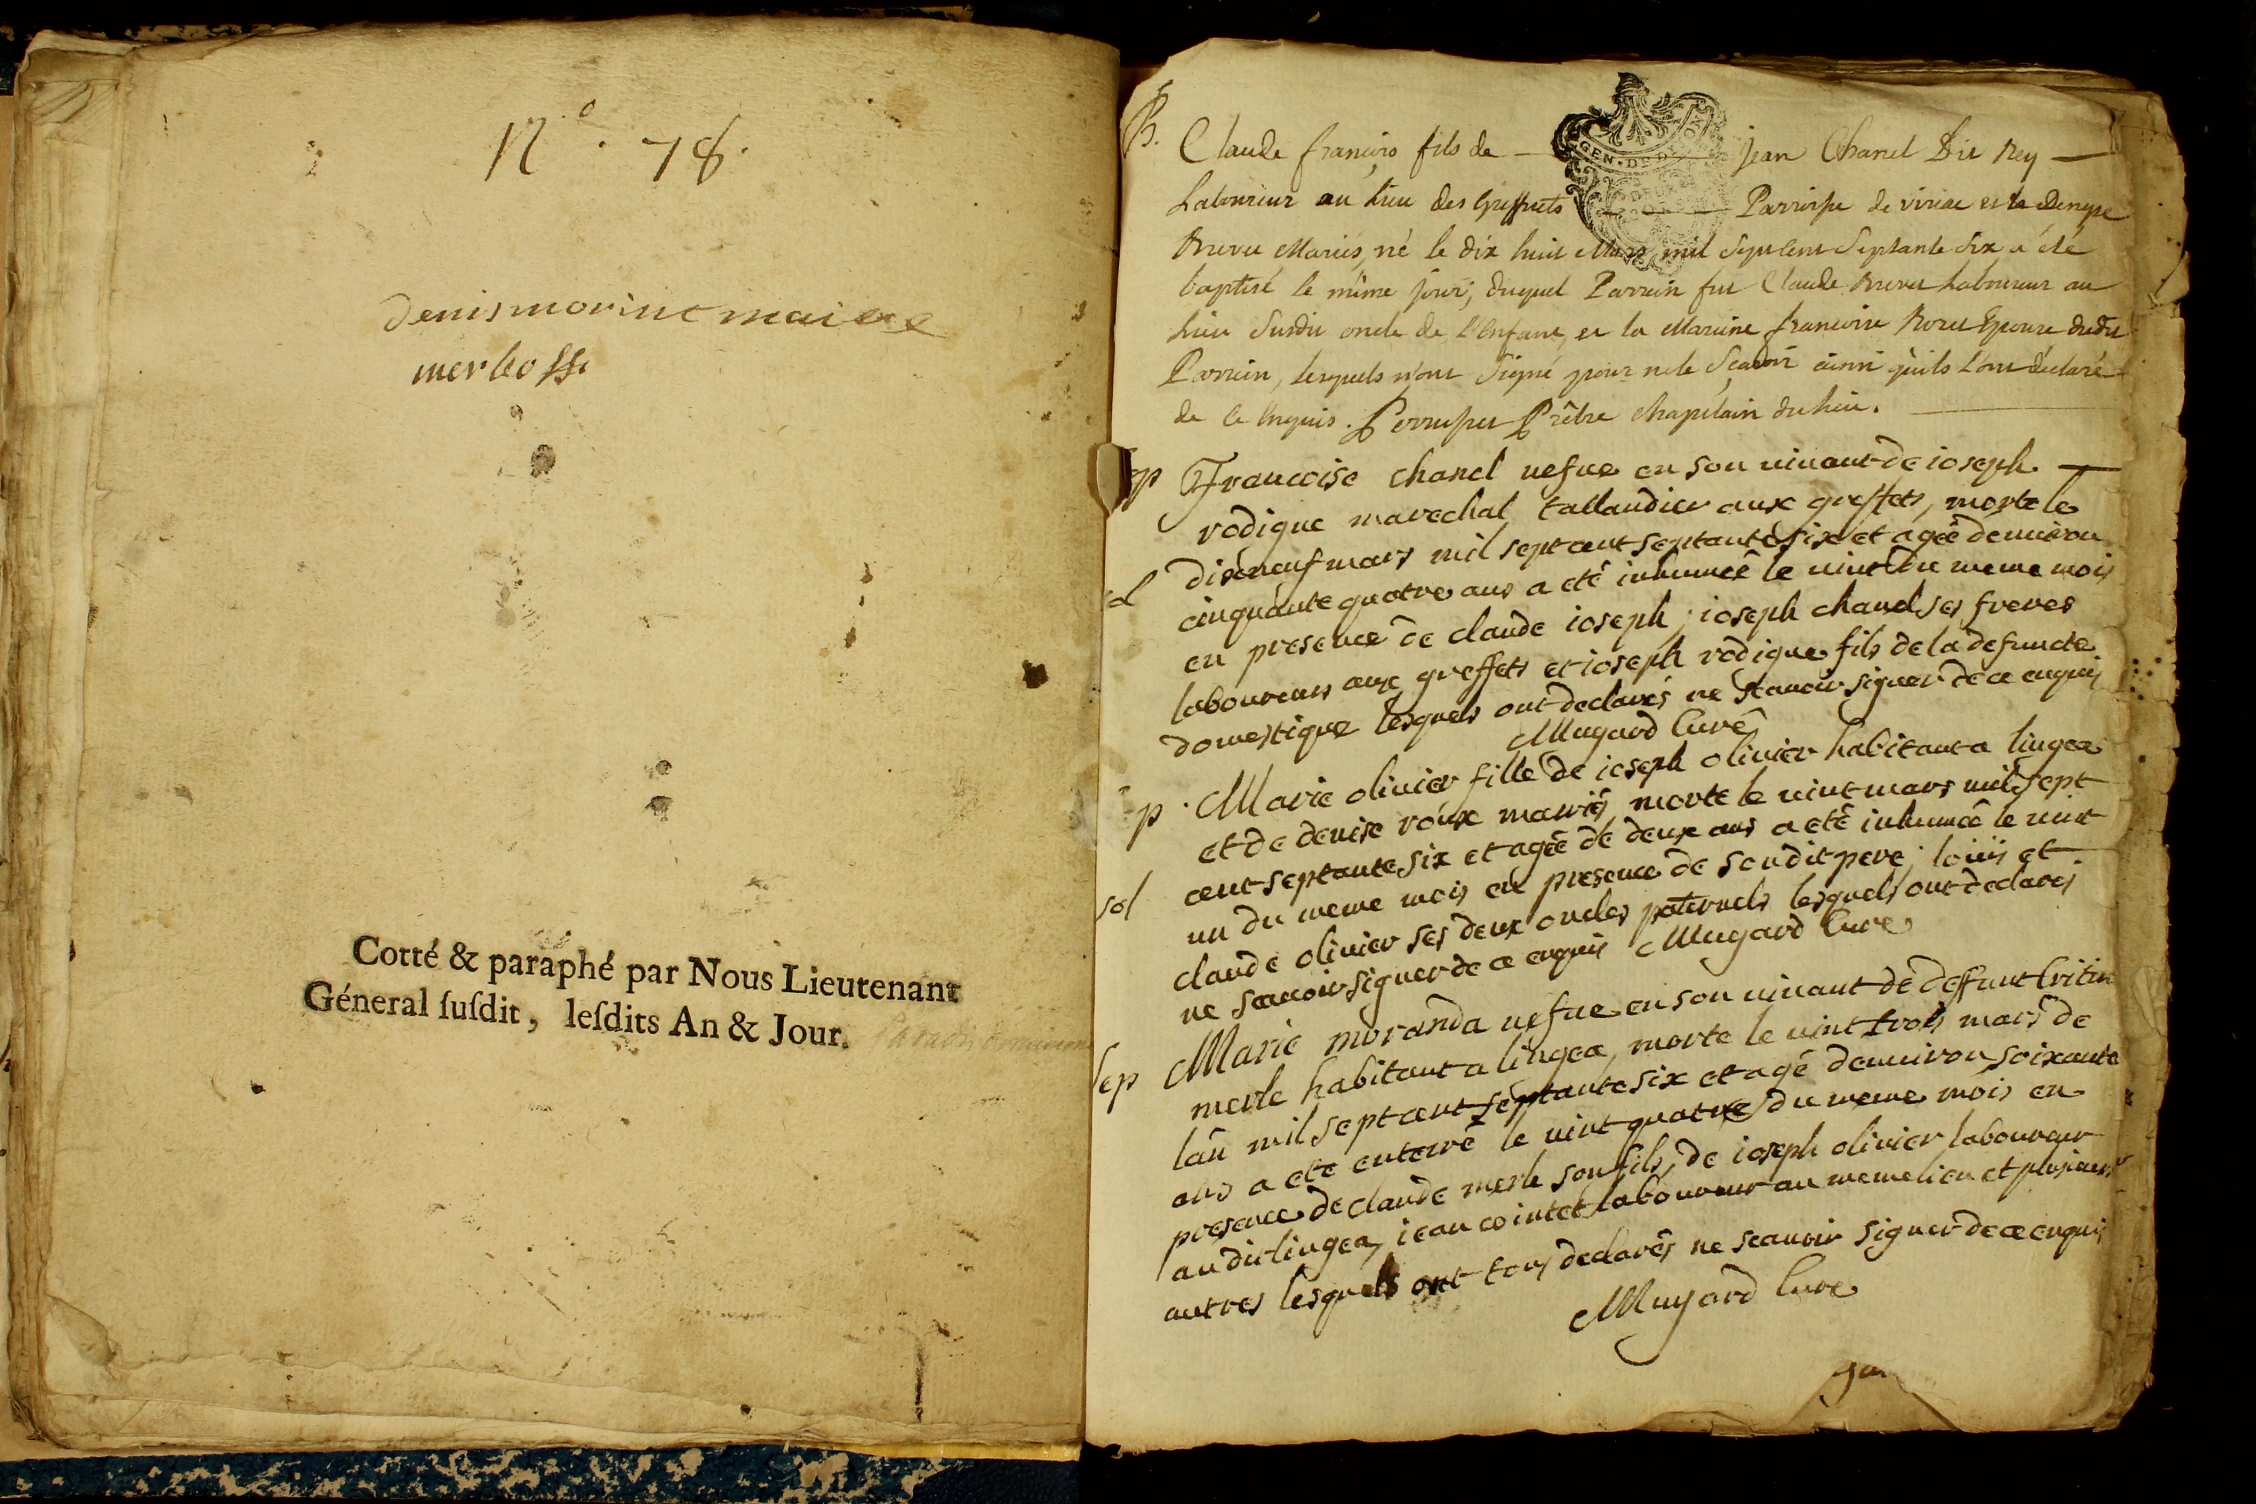 N° . 78.
denis morinc maire
merbosse
Cotté & paraphé par Nous Lieutenant
Géneral ſuſdit, leſdits An & Jour.
B. Claude françois fils de — GEN · DE D jean Chanel Dit Rey —
Laboureur au lieu des Greffets — Parroisse de viriac et de Denyse
Brevet Mariés, né le dix huit Mars mil Sept cent Septante Six a été
baptisé le même jour, duquel Parrain fut Claude Brevet Laboureur au
lieu Susdit oncle de l'Enfant, et la Marraine francoise Epouse dudit
Parrain, lesquels n'ont Signé pour ne le Scavoir ainsi qu'ils l'ont déclaré
de ce Enquis. Perruquet Prêtre chapelain du lieu.
Sep Francoise chanel vefue en son viuant de ioseph —
rodique marechal tallandier aux greffets, morte le
dixneuf mars mil sept cent septante six et agée denuiron
cinquante quatre ans a eté inhumée le vint du meme mois
en presence de claude ioseph, ioseph chanel ses freres
laboureurs aux greffets et ioseph rodique fils de la defuncte
domestique lesquels ont declarés ne scauoir signer de ce enquis
Mugard Curé
p. Marie olivier fille de ioseph olivier habitant a lingea
et de denise roux mariés, morte le vint mars mil sept
cent septante six et agée de deux ans a eté inhumée le vint
sol un du meme mois en presence de son dit pere, loüis et
claude olivier ses deux oncles paternels lesquels ont declarés
ne scauoir signer de ce enquis Mugard Cure
Sep Marie moranda vefue en son viuant de deffunt
merle habitant a lingea, morte le vint trois mars de
lan mil sept cent septante six et agé denuiron soixante
ans a ete enterré le vint quatre du meme mois en
presence de claude merle son fils, de ioseph olivier laboureur
audit lingea, iean cointet laboureur au meme lieu et plusieurs
autres lesquels ont tous declarés ne scauoir signer de ce enquis
Mugard Cure